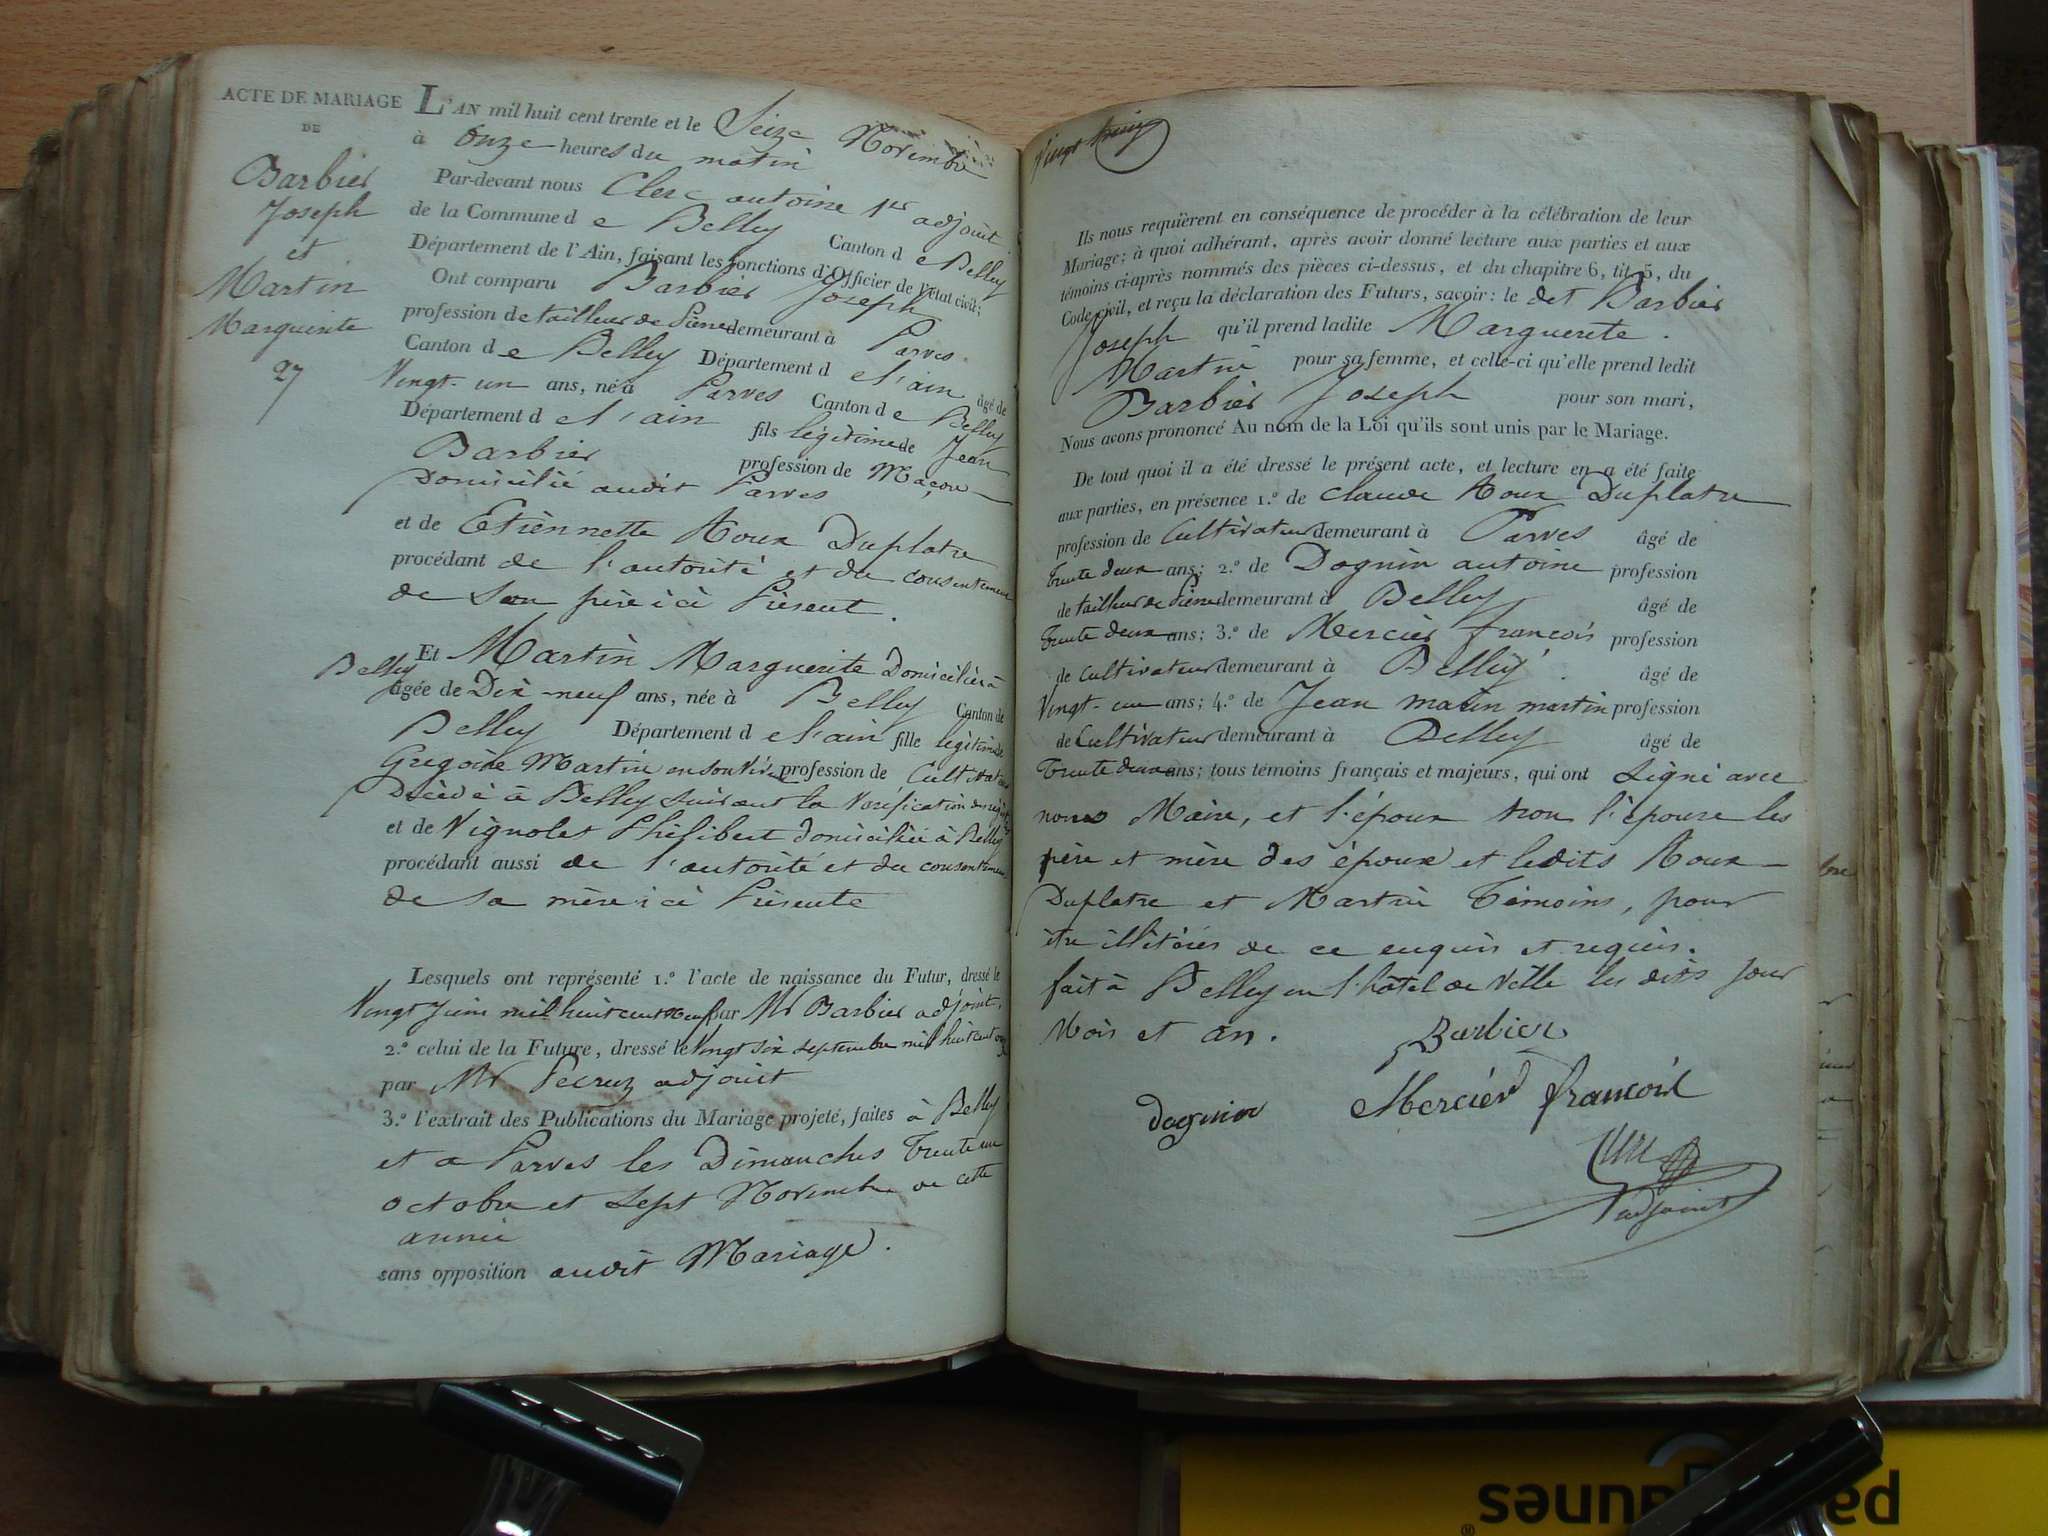 ACTE DE MARIAGE
DE
Barbier
Joseph
et
Martin
Marguerite
27
L'AN mil huit cent trente et le Seize Novembre
à Onze heures du matin
Par-devant nous Clerc antoine 1er adjoint
de la Commune de Belley Canton de Belley
Département de l'Ain, faisant les fonctions d'Officier de l'état civil;
Ont comparu Barbier Joseph
profession de tailleur de Pierre demeurant à Parves
Canton de Belley Département de l'ain âgé de
Vingt-un ans, né à Parves Canton de Belley
Département de l'ain fils légitime de Jean
Barbier profession de Maçon
Domicilié audit Parves
et de Etiennette Roux Duplatre
procédant de l'autorité et du consentement
de Son père ici Présent.
Et Martin Marguerite Domiciliée à
Belley
âgée de Dix-neuf ans, née à Belley Canton de
Belley Département de l'ain fille légitime de
Gregoire Martin en son Vivant profession de Cultivateur
Décédé à Belley suivant la Vérification des registres
et de Vignolet Philibert domiciliée à Belley
procédant aussi de l'autorité et du consentement
de sa mère ici Présente
Lesquels ont représenté 1.º l'acte de naissance du Futur, dressé le
Vingt Juin mil huit cent neuf par Mr Barbier adjoint,
2.º celui de la Future, dressé le Vingt six septembre mil huit cent onze
par Mr Peeruz adjoint
3.º l'extrait des Publications du Mariage projeté, faites à Belley
et a Parves les Dimanches Trente un
octobre et Sept Novembre de cette
année
sans opposition audit Mariage.
Vingt
Ils nous requièrent en conséquence de procéder à la célébration de leur
Mariage; à quoi adhérant, après avoir donné lecture aux parties et aux
témoins ci-après nommés des pièces ci-dessus, et du chapitre 6, tit. 5, du
Code civil, et reçu la déclaration des Futurs, savoir: le dit Barbier
Joseph qu'il prend ladite Marguerite
Martin pour sa femme, et celle-ci qu'elle prend ledit
Barbier Joseph pour son mari,
Nous avons prononcé Au nom de la Loi qu'ils sont unis par le Mariage.
De tout quoi il a été dressé le présent acte, et lecture en a été faite
aux parties, en présence 1.º de claude Roux Duplatre
profession de Cultivateur demeurant à Parves âgé de
Trente deux ans; 2.º de Dognin antoine profession
de tailleur de Pierre demeurant à Belley âgé de
Trente deux ans; 3.º de Mercier françois profession
de Cultivateur demeurant à Belley âgé de
Vingt-un ans; 4.º de Jean martin profession
de Cultivateur demeurant à Belley âgé de
Trente deux ans; tous témoins français et majeurs, qui ont Signé avec
nous Maire, et l'époux non l'épouse les
père et mère des époux et ledits Roux
Duplatre et Martin Témoins, pour
être illitérés de ce enquis et requis.
fait à Belley en l'hôtel de Ville les dits Jour
Mois et an.
Barbier
dognin Mercier françois
Clerc
adjoint
pa
aunes
®